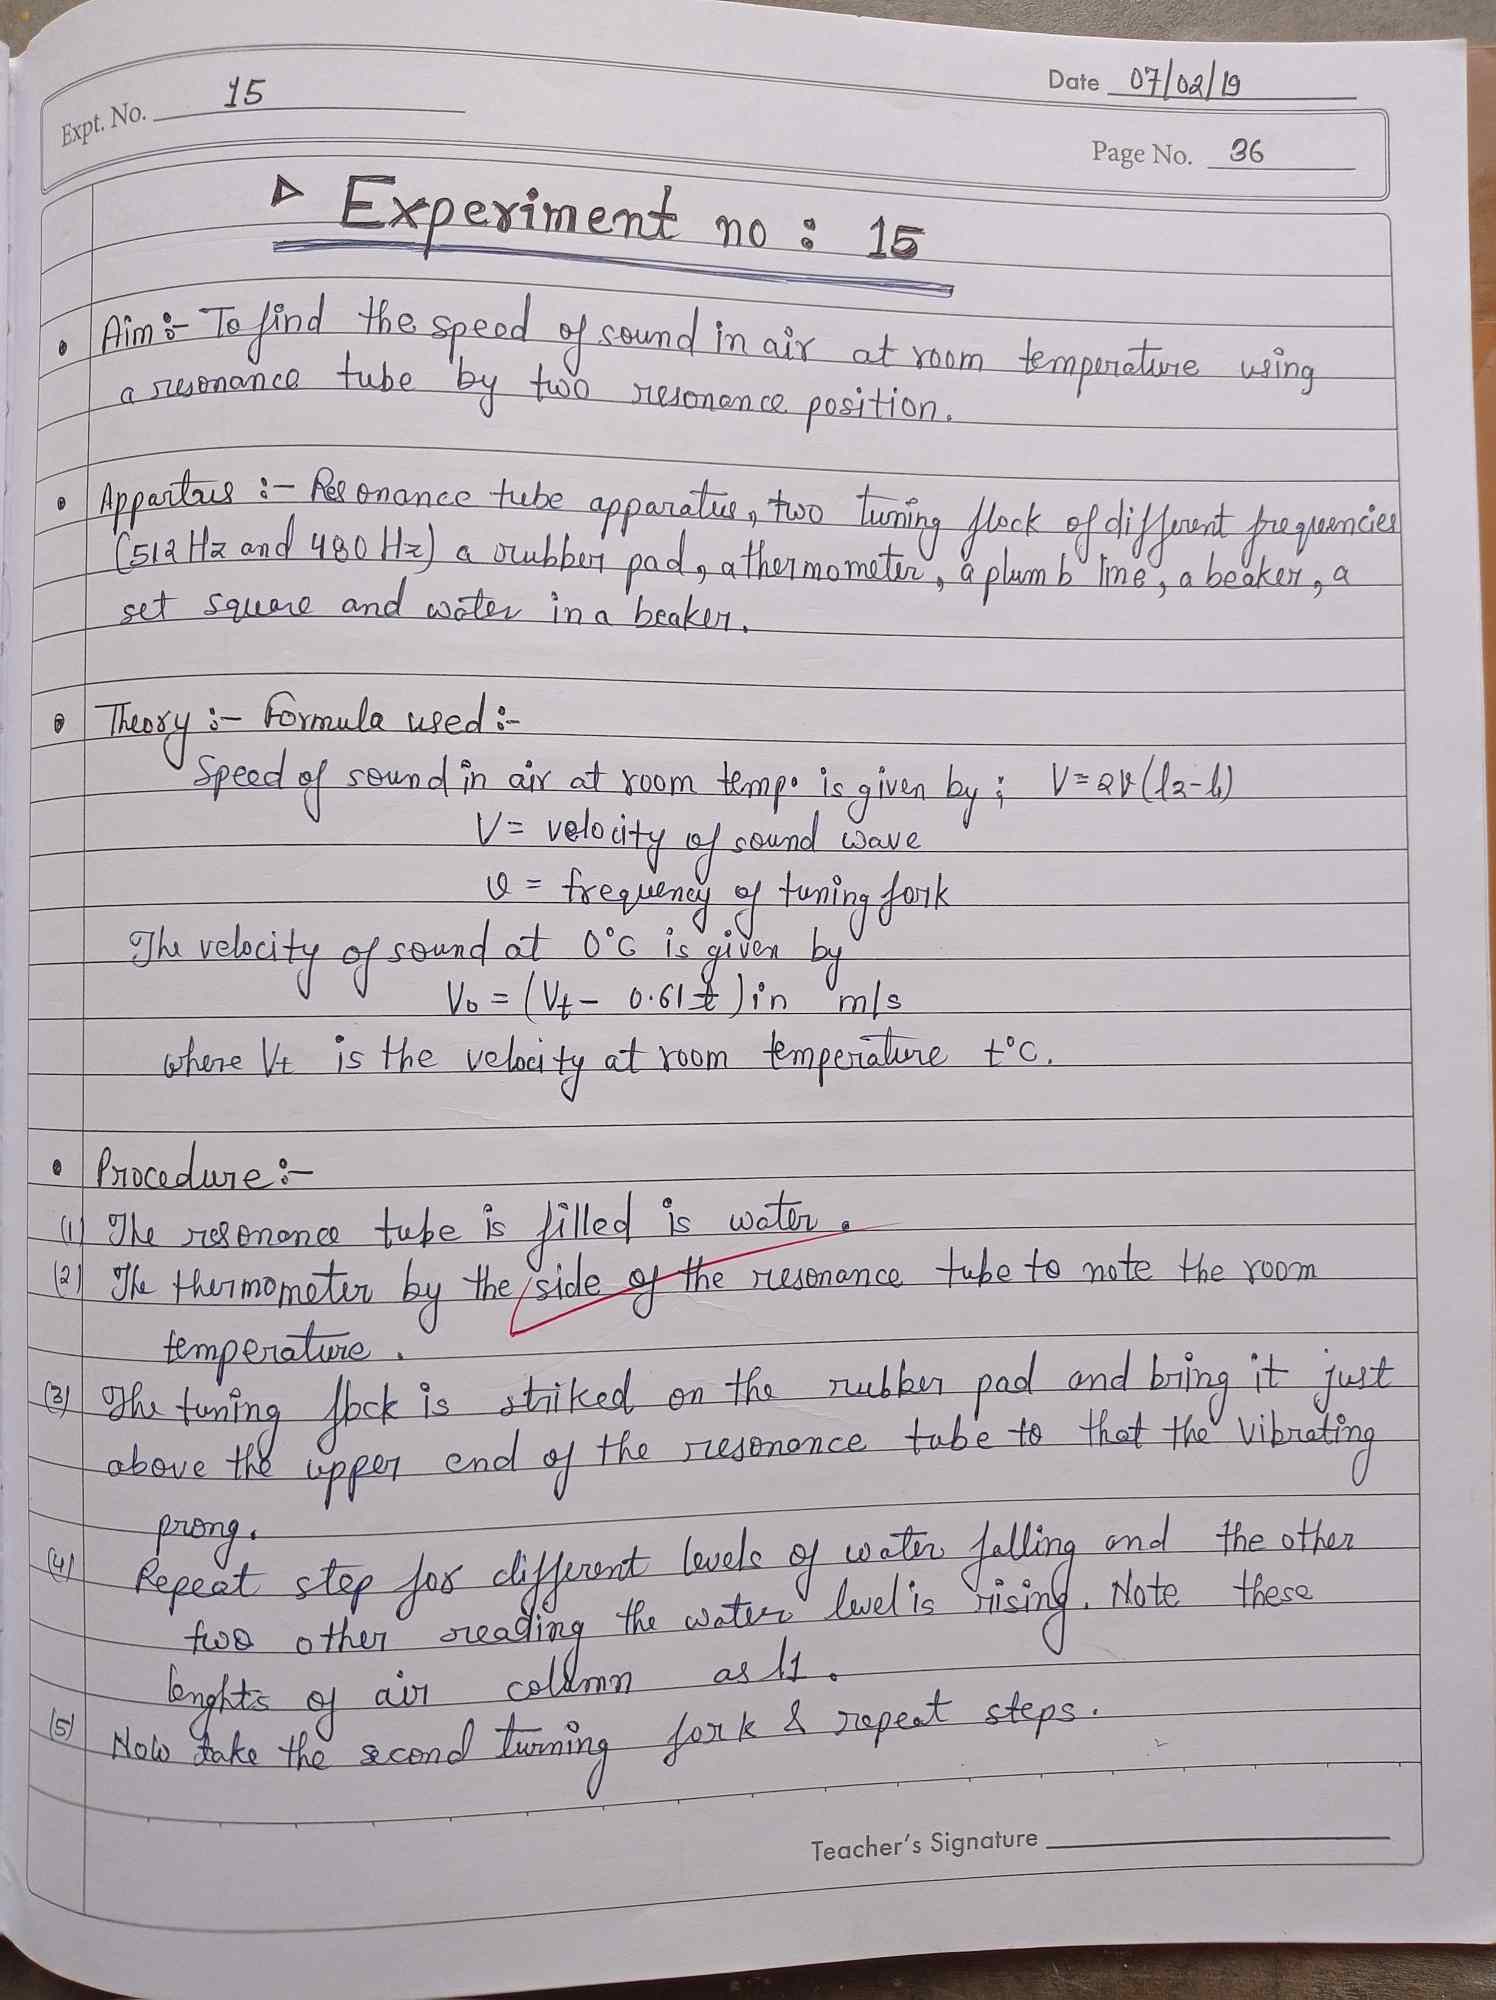 Expt. No. 15
Date 07/02/19
Page No. 36
Experiment no : 15
Aim :- To find the speed of sound in air at room temperature using
a resonance tube by two resonance position.
Appartus :- Resonance tube apparatus, two tuning flock of different frequencies
(512 Hz and 480 Hz) a rubber pad, a thermometer, a plumb line, a beaker, a
set square and water in a beaker.
Theory :- Formula used :-
Speed of sound in air at room temp. is given by ; V=2ν(l2-l1)
V= velocity of sound wave
υ = frequency of tuning fork
The velocity of sound at 0°C is given by
V0 = (Vt - 0.61t) in m/s
where Vt is the velocity at room temperature t°C.
Procedure :-
(1) The resonance tube is filled is water.
(2) The thermometer by the side of the resonance tube to note the room
temperature.
(3) The tuning flock is striked on the rubber pad and bring it just
above the upper end of the resonance tube to that the vibrating
prong.
(4) Repeat step for different levels of water falling and the other
two other reading the water level is rising. Note these
lenghts of air column as l1.
(5) Now take the second turning fork & repeat steps.
Teacher's Signature